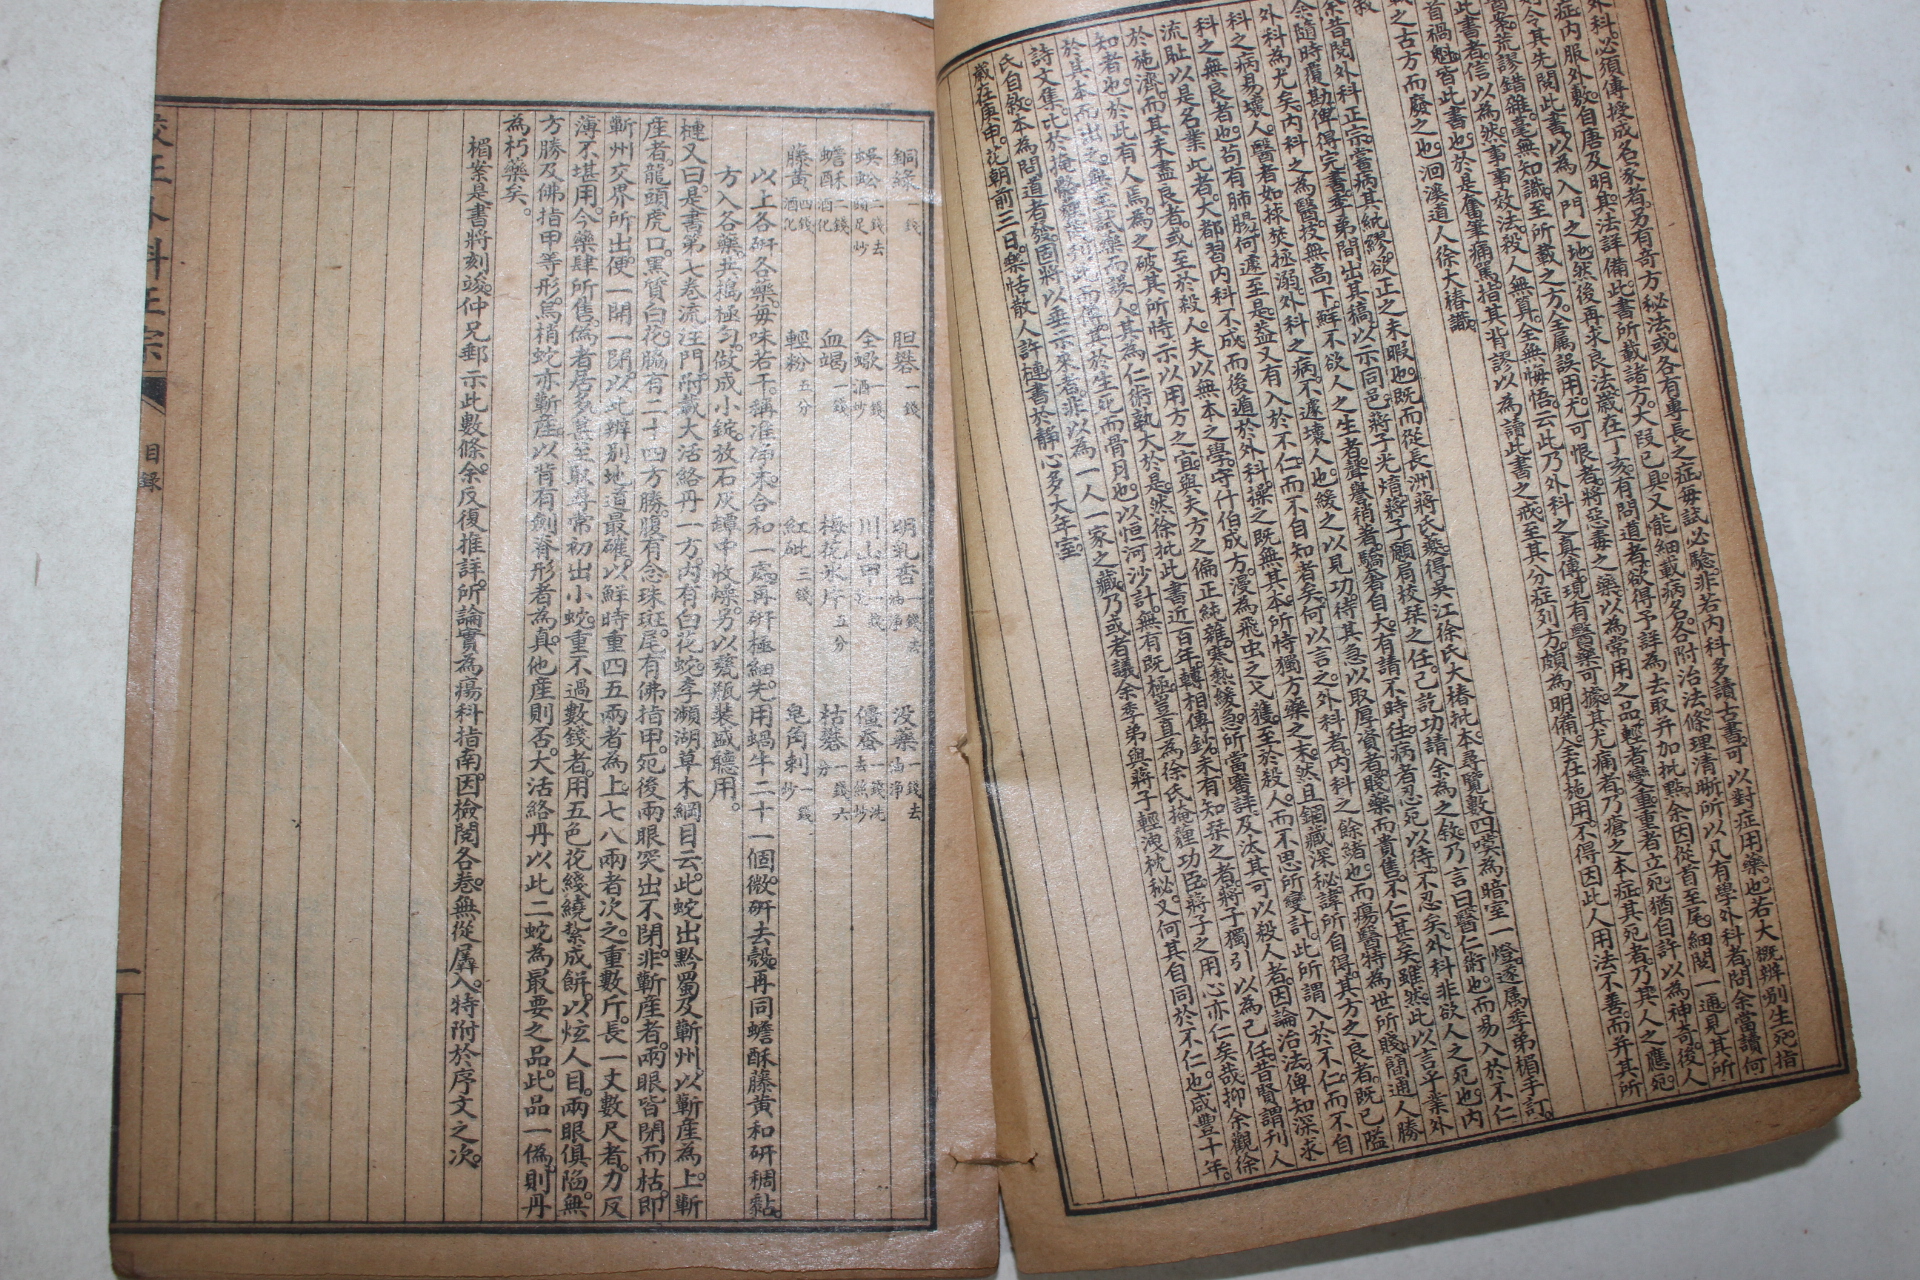 外科必須傳授成名家者另有奇方秘法或各有專長之症每試必驗非若內科多讀古書可以對症用藥也若大概辨別生死指
症內服外敷自唐及明其法詳備此書所載諸方大段已具又能細載病名各附治法條理清晰所以凡有學外科者問余當讀何
令其先閱此書以為入門之地然後再求良法歲在丁亥有問道者欲得予詳為去取并加批點余因從首至尾細閱一過見其所
荒謬錯雜毫無知識至所載之方全屬誤用尤可恨者將惡毒之藥以為常用之品輕者變重重者立死猶自許以為神奇後人
此書者信以為然事事效法殺人無算全無悔悟云此乃外科之真傳現有醫藥可據其尤痛者乃瘡之本症其死者乃其人之應死
首禍魁皆此書也於是奮筆痛罵指其背謬以為讀此書之戒至其分症列方頗為明備全在施用不得因此人用法不善而并其所
之古方而廢之也洄溪道人徐大椿識
敘
余昔閱外科正宗嘗病其紕繆欲正之未暇也既而從長洲蔣氏夔得吳江徐氏大椿批本尋覽數四嘆為暗室一燈遂屬季弟楣手訂
余隨時覆勘俾得完書季弟間出其稿以示同邑蔣子光焴蔣子願肩校栞之任已訖功請余為之敘乃言曰醫仁術也而易入於不仁
外科為尤矣內科之為醫技無高下鮮不欲人之生者聲譽稍著驕奢自大有請不時往病者忍死以待不忍矣外科非欲人之死也內
科之病易壞人醫者如捄焚拯溺外科之病不遽壞人也緩之以見功待其急以取厚貲者賤藥而貴售不仁甚矣雖然此以言乎業外
科之無良者也苟有肺腸何遽至是蓋又有入於不仁而不自知者矣何以言之外科者內科之餘緒也而瘍醫特為世所賤簡通人勝
流恥以是名業此者大都習內科不成而後遁於外科操之既無其本所恃獨方藥之末然且錮藏深秘諱所自得其方之良者既已隘
於施濟而其未盡良者或至於殺人夫以無本之學守什伯成方漫為飛虫之弋獲至於殺人而不思所變計此所謂入於不仁而不自
知者也於此有人焉為之破其所恃示以用方之宜與夫方之偏正純雜寒熱緩急所當審詳及汰其可以殺人者因論治法俾知深求
於其本而出之無至試藥而誤人其為仁術孰大於是然徐批此書近百年轉相傳鈔未有知栞之者蔣子獨引以為己任昔賢謂刊人
詩文集比於掩骼
而骨肉也以恒河沙計無有既極豈直為徐氏掩貍功臣蔣子之用心亦仁矣哉抑余觀徐
氏自敘本為問道者發固將以垂示來者非以為一人一家之藏乃或者議余季弟與蔣子輕洩枕秘又何其自同於不仁也咸豐十年
歲在庚申花朝前三日樂恬散人許楗書於靜心多大年室
銅綠一錢 胆礬一錢 明乳香一錢去油淨 沒藥一錢去油淨
蜈蚣二錢去頭足炒 全蠍一錢酒炒 川山甲一錢 僵蠶一錢洗去絲炒
蟾酥二錢酒化 血竭一錢 梅花氷片五分 枯礬一錢六分
藤黃四錢酒化 輕粉五分 紅砒三錢 皂角刺一錢炒
以上各研各藥每味若干稱准淨末合和一處再研極細先用蝸牛二十一個微研去殼再同蟾酥藤黃和研稠黏
方入各藥共搗極勻做成小錠放石灰罈中收燥另以甆瓶裝盛聽用
楗又曰是書第七卷流注門附載大活絡丹一方內有白花蛇李瀕湖草木綱目云此蛇出黔蜀及蘄州以蘄產為上蘄
產者龍頭虎口黑質白花脇有二十四方勝腹有念珠斑尾有佛指甲死後兩眼突出不閉非蘄產者兩眼皆閉而枯即
蘄州交界所出便一開一閉以此辨別地道最確以鮮時重四五兩者為上七八兩者次之重數斤長一丈數尺者力反
薄不堪用今藥肆所售偽者居多甚至取尋常初出小蛇重不過數錢者用五色花綫繞紮成餅以炫人目兩眼俱陷無
方勝及佛指甲等形烏梢蛇亦蘄產以背有劍脊形者為真他產則否大活絡丹以此二蛇為最要之品此品一偽則丹
為朽藥矣
楣案是書將刻竣仲兄郵示此數條余反復推詳所論實為瘍科指南因檢閱各卷無從羼入特附於序文之次
校正外科正宗 目錄 一